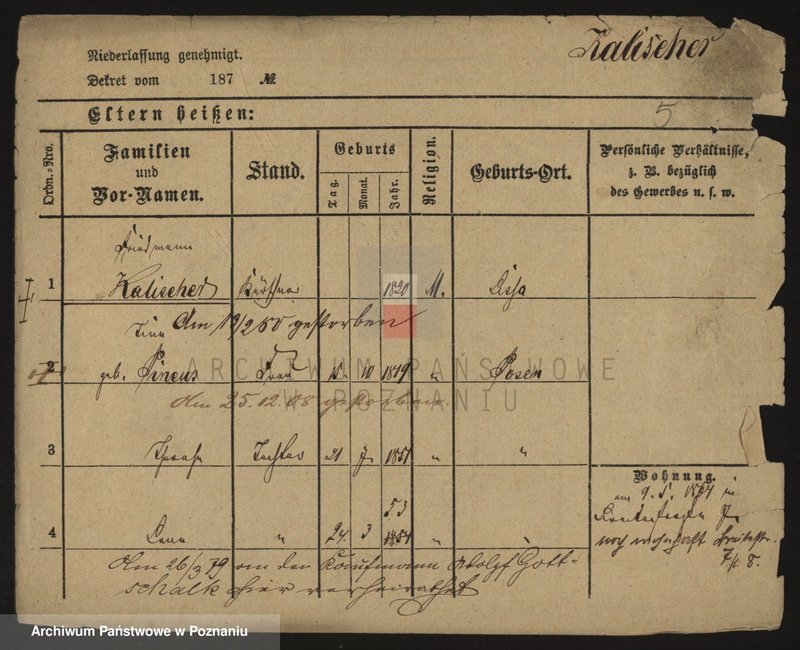 Kalischer
Niederlassung genehmigt.
Dekret vom 187 №
5
Eltern heißen:
Ordn.-Nro.
Familien
und
Vor-Namen.
Stand.
Geburts
Tag.
Monat.
Jahr.
Religion.
Geburts-Ort.
Persönliche Verhältnisse,
z. B. bezüglich
des Gewerbes u. s. w.
1 Kalischer Kürschner 1820 M. Lissa
Am 19/2 80 gestorben
2 geb. Pincus Frau 15 10 1819 " Posen
Am 25.12.08 gestorben.
3 Tochter 21 7 1851 " "
Wohnung.
am 9. 5. 1874 in
53
4 " 24. 3 1854 " "
noch wohnhaft Breitestr.
Am 26/3 79 an den Kaufmann Adolf Gott-
schalk hier verheirathet
ARCHIWUM PAŃSTWOWE
W POZNANIU
Archiwum Państwowe w Poznaniu